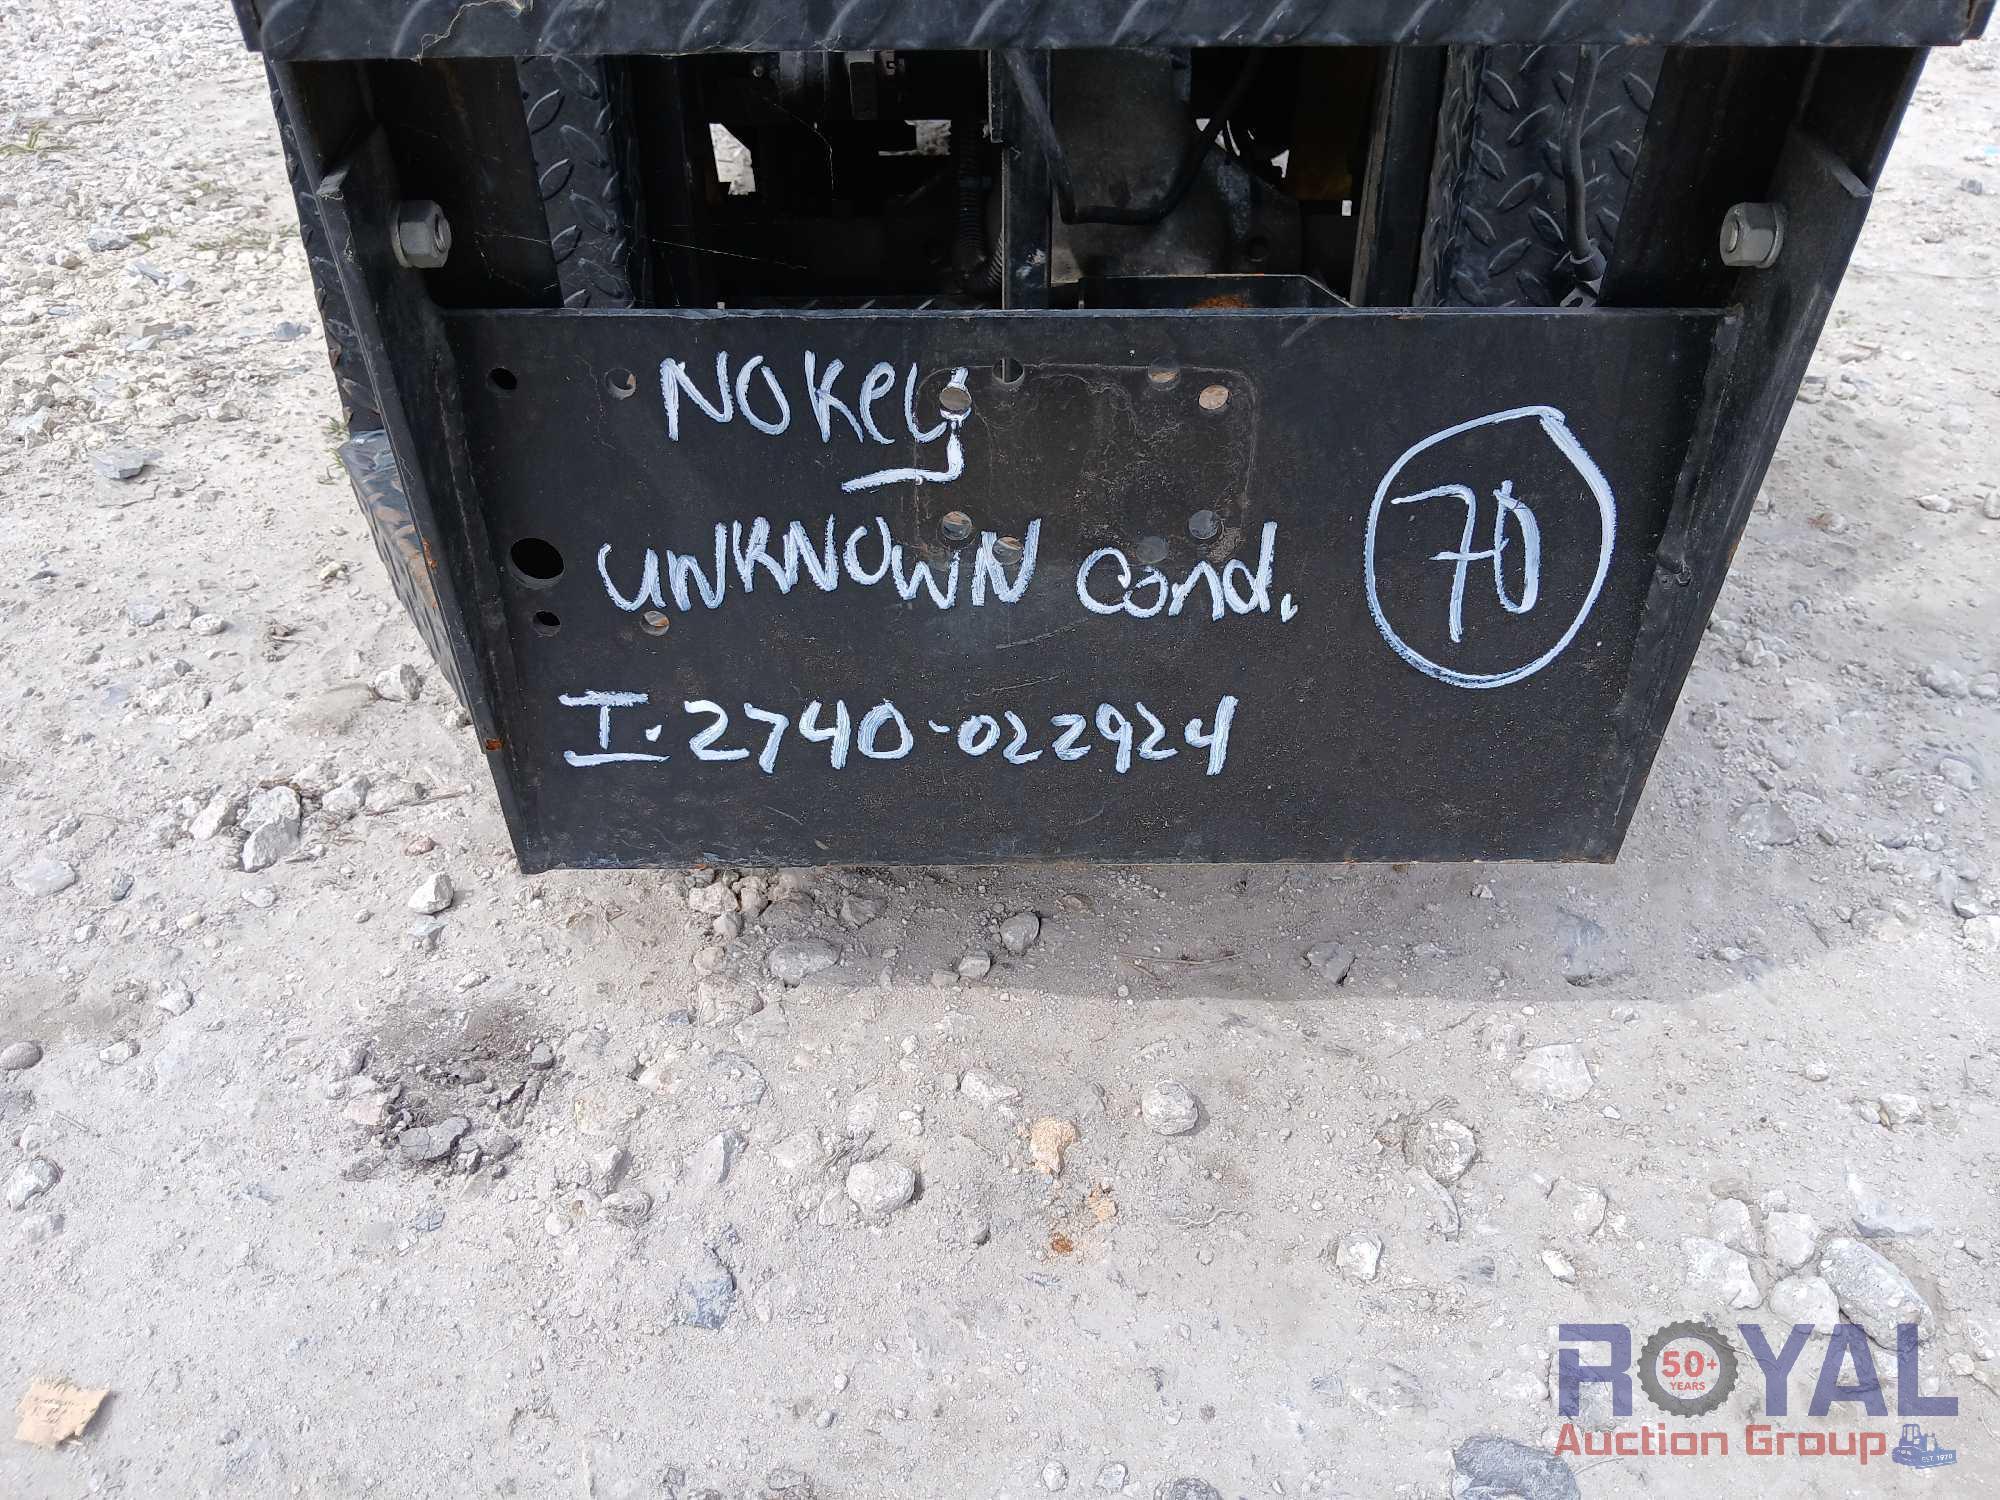 NO Key
UNKNOWN Cond.
70
I.2740-022924
ROYAL
50+
YEARS
Auction Group
EST. 1970